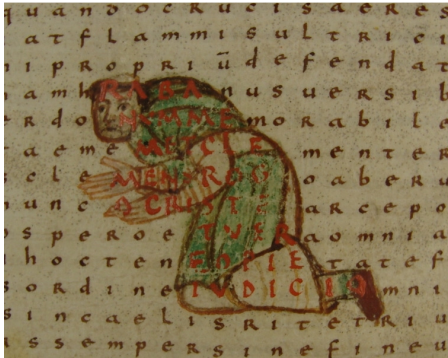 quandocrucisaeres
atflammisultrici
nipropriūdefendat
amhRABAnusuersib
erdoNUMMEmorabile
taemeMTCLEmenter
scleMENSROGOoaberu
nuncACRISTEarcepo
speroeTUERaomnia
hoctenEOPIEtatef
sordineIUDICIOmni
sincaelisritetriu
rssempersinefineu